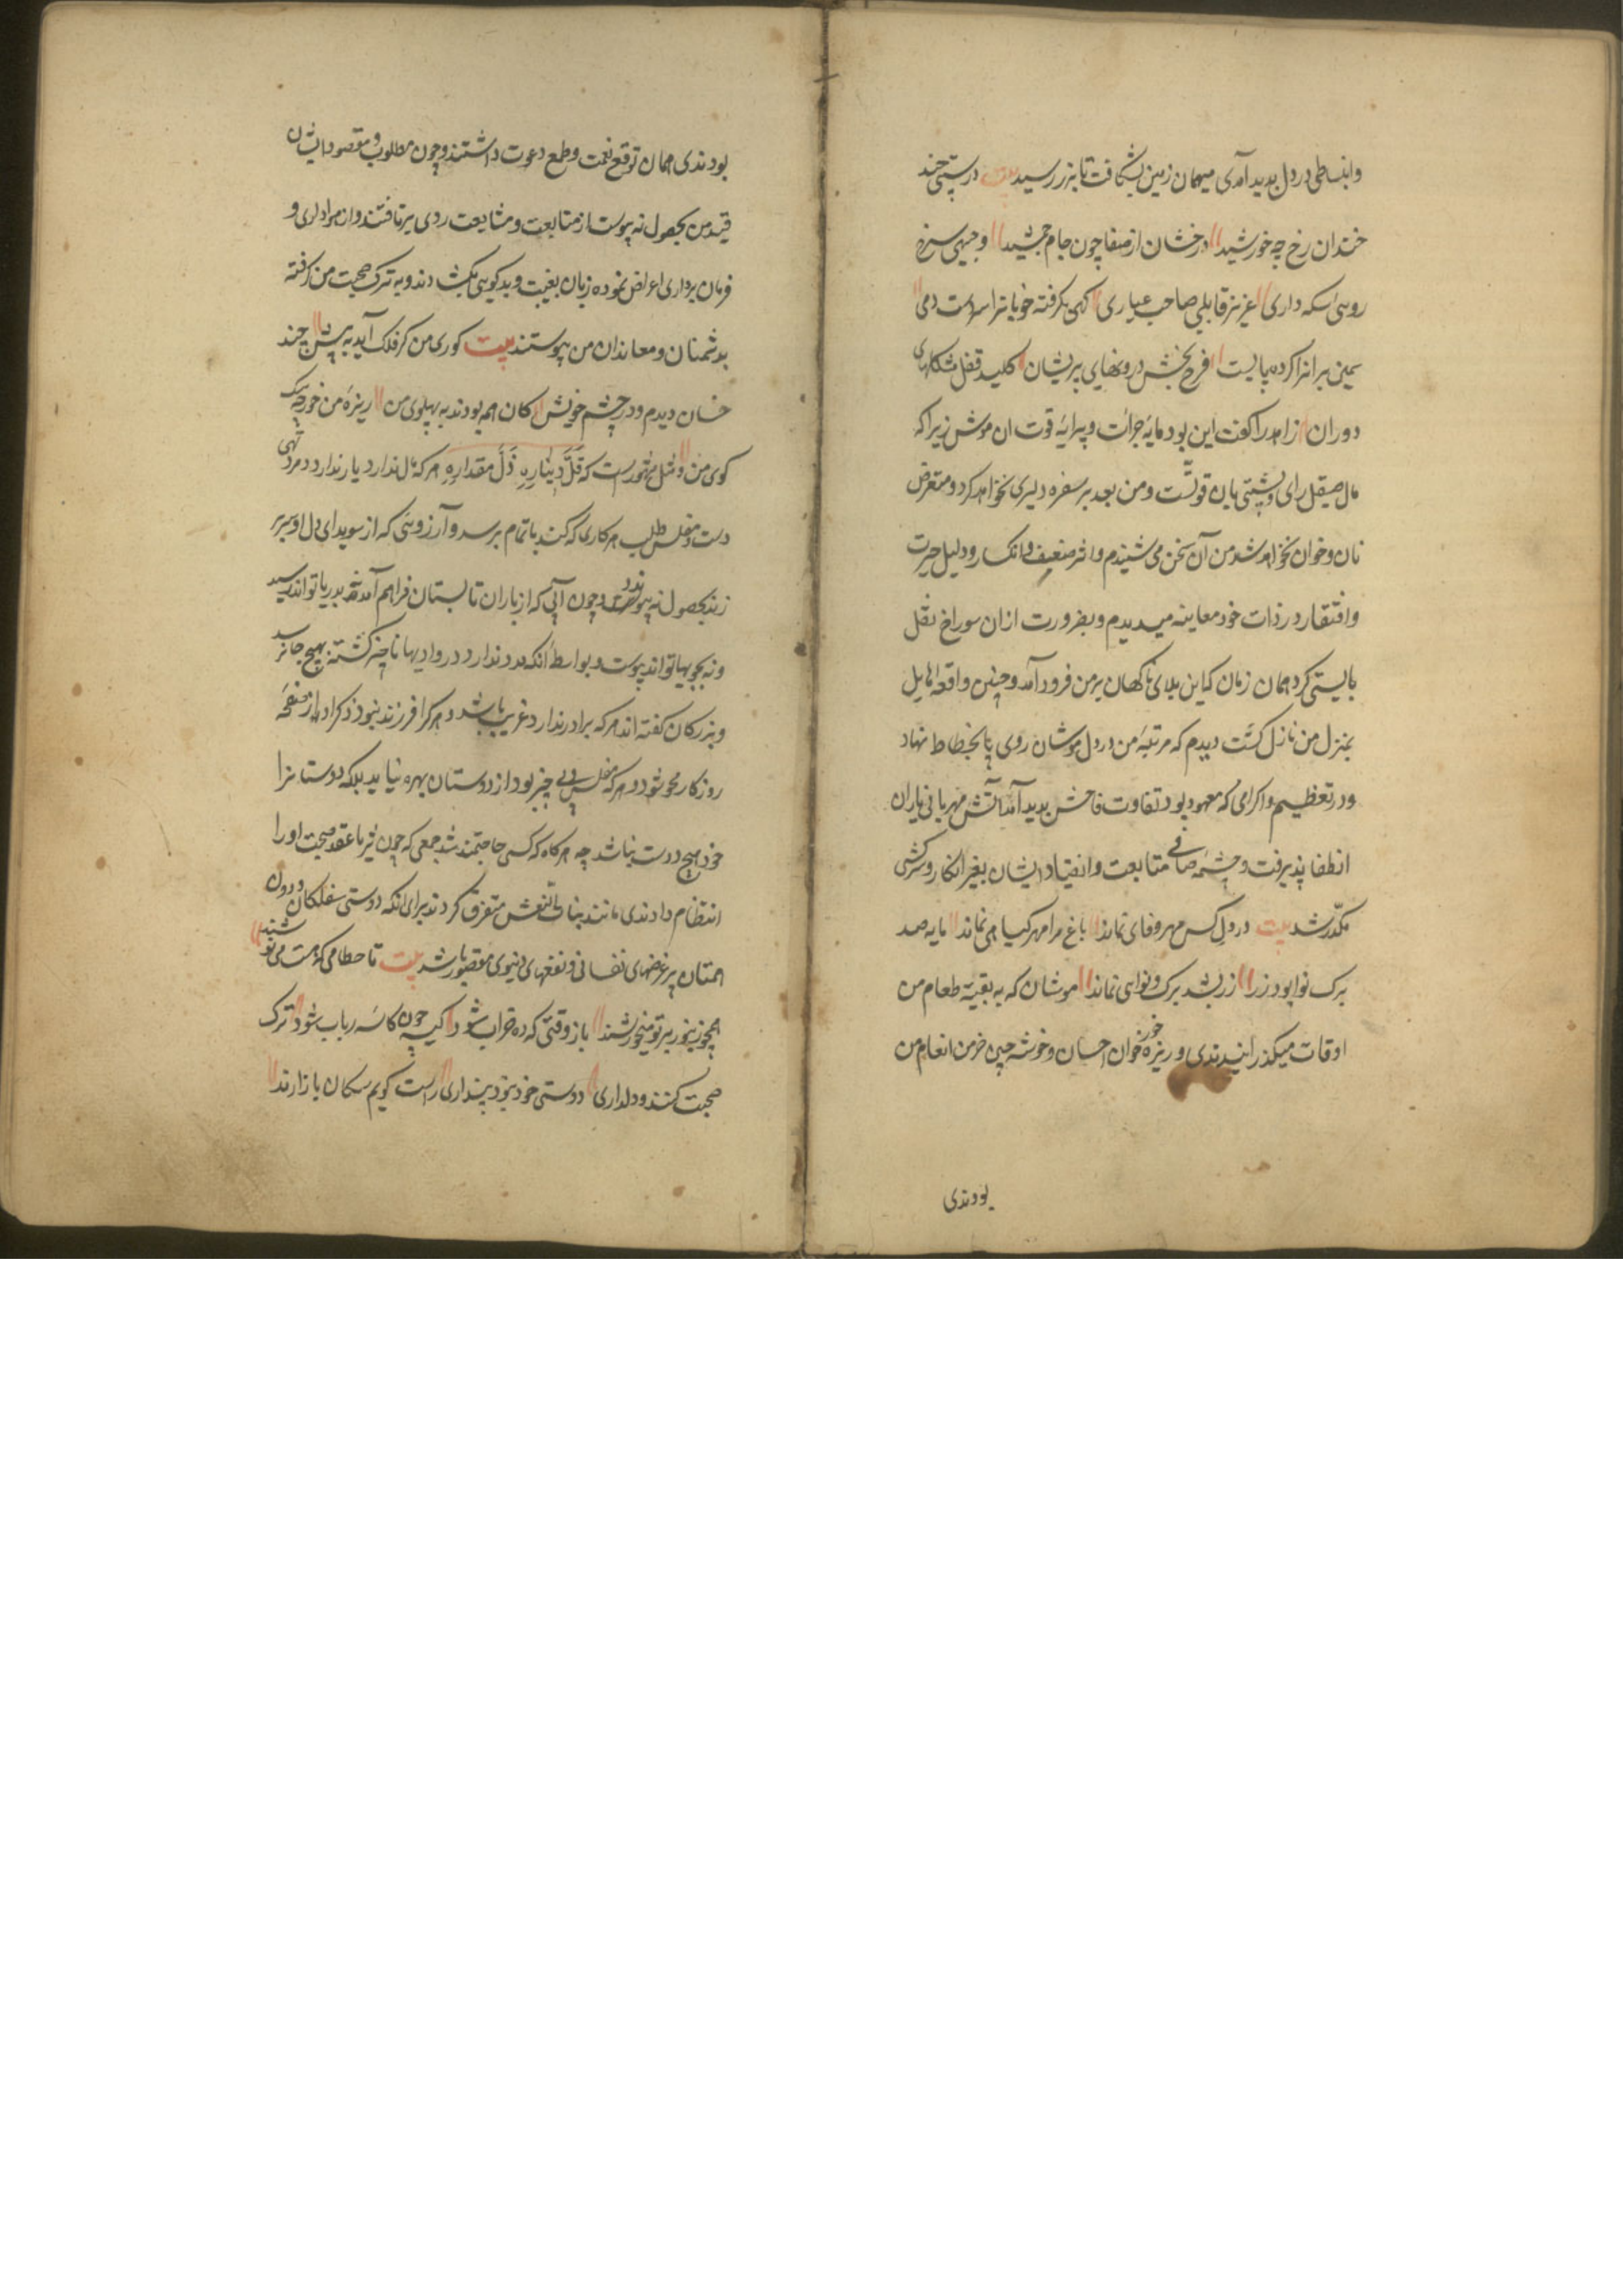 وانبساطی در دل پدید آمدی میهمان زمین بشکافت تا بزر رسید بیت درستی چند
خندان رخ چه خورشید درخشان از صفا چون جام جمشید وجیهی سرخ
روئی سکه داری عزیز قابلی صاحب عیاری کهی بکرفته خوبانرا سر دست دمی
سیمین برانرا کرده پا پست فرح بخش درونهای پریشان کلید قفل مشکلهای
دوران زاهد را کفت این بود مایهٔ جرأت و پیرایهٔ قوت ان موش زیرا که
مال صیقل رای و پشتی بان قوتست و من بعد بر سفره دلیری نخواهد کرد و متعرض
نان و خوان نخواهد شد من آن سخن می شنیدم و اثر ضعف و انکسار و دلیل حیرت
و افتقار در ذات خود معاینه میدیدم و بضرورت ازان سوراخ نقل
بایستی کرد همان زمان که این بلای ناکهان بر من فرود آمد و چنین واقعه هایل
بمنزل من نازل کشت دیدم که مرتبهٔ من در دل موشان روی بانحطاط نهاد
و در تعظیم و اکرامی که معهود بود تفاوت فاحش پدید آمد آتش مهربانی یاران
انطفا پذیرفت و چشمهٔ صافی متابعت و انقیاد ایشان بغبر انکار و سرکشی
مکدّر شد بیت در دل کس مهر و فای نماند باغ مرا مهر کیا هی نماند مایه صد
برک نوا بود زر زر بشد برک و نوای نماند موشان که به بقیته طعام من
اوقات میکذرانیدندی و ریزه خور خوان احسان و خوشه چین خرمن انعام من
بودندی
بودندی همان توقع نعمت و طمع دعوت داشتند و چون مطلوب و مقصود ایشان
من بحصول نه پیوست از متابعت و مشایعت روی برتافتند و از هواداری و
فرمان برداری اعراض نموده زبان بغیبت و بدکوئی بکشادند و به ترک صحبت من کرفته
بدشمنان و معاندان من پیوستند بیت کوری من کر فلک آید به پیش چند
خسان دیدم و در چشم خویش کان همه بودند به پهلوی من ریزهٔ من خورده بیک
کوی من و مثل مشهورست که قَلَّ دِینَارِهِ ذَلَّ مقدارِهِ هر که مال ندارد یار ندارد و مرد تهی
دست و مفلس طلب هر کاری که کند باتمام نرسد و آرزوئی که از سویدای دل او سر بر
زند بحصول نه پیوندد چون آبی که از باران تابستان فراهم آمده نه بدریا تواند رسید
و نه بجویها تواند پیوست و بواسطهٔ انکه مدد ندارد در وادیها ناچیز کشته بهیچ جا نرسد
و بزرکان کفته اند هر که برادر ندارد غریب باشد و هر کرا فرزند نبود ذکر او از صفحهٔ
روزکار محو شود و هر که مفلس و بی چیز بود از دوستان بهره نیابد بلکه دوستانرا
خود هیچ دوست نباشد چه هر کاه که کسی حاجتمند شد جمعی که چون ثریا عقد صحبت او را
انتظام دادندی مانند بنات النعش متفرق کردند برای انکه دوستی سفلکان و دون
همتان بر غرضهای نفسانی و نفعهای دنیوی مقصور باشد بیت تا حطامی که هست می نوشند
همچو زنبور بر تو میجوشند باز وقتی که ده خراب شود کیسه چون کاسهٔ رباب شود ترک
صحبت کنند و دلداری دوستی خود نبود پنداری راست کویم سکان بازارند